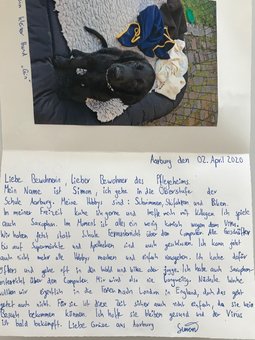 Aarburg den 02. April 2020
Liebe Bewohnerin, Lieber Bewohner des Pflegeheims.
Mein Name ist Simon, ich gehe in die Oberstufe der
Schule Aarburg. Meine Hobbys sind: Schwimmen, Skifahren und Biken.
In meiner Freizeit koche ich gerne und treffe mich mit Kollegen. Ich spiele
auch Saxofon. Im Moment ist alles ein wenig komisch wegen dem Virus.
Wir haben jetzt statt Schule Fernunterricht über den Computer. Alle Geschäfte
bis auf Supermärkte und Apotheken sind auch geschlossen. Ich kann jetzt
auch nicht mehr alle Hobbys machen und einfach rausgehen. Ich koche dafür
öfters und gehe oft in den Wald und bike oder jogge. Ich habe auch Saxophon-
unterricht über den Computer. Mir wird also nie langweilig. Nächste Woche
wollten wir eigentlich in die Ferien nach London in England, doch das geht
jetzt auch nicht. Für sie ist diese Zeit sicher auch nicht einfach, da sie kein
Besuch bekommen können. Ich hoffe sie bleiben gesund und der Virus
ist bald bekämpft. Liebe Grüsse aus Aarburg
Simon